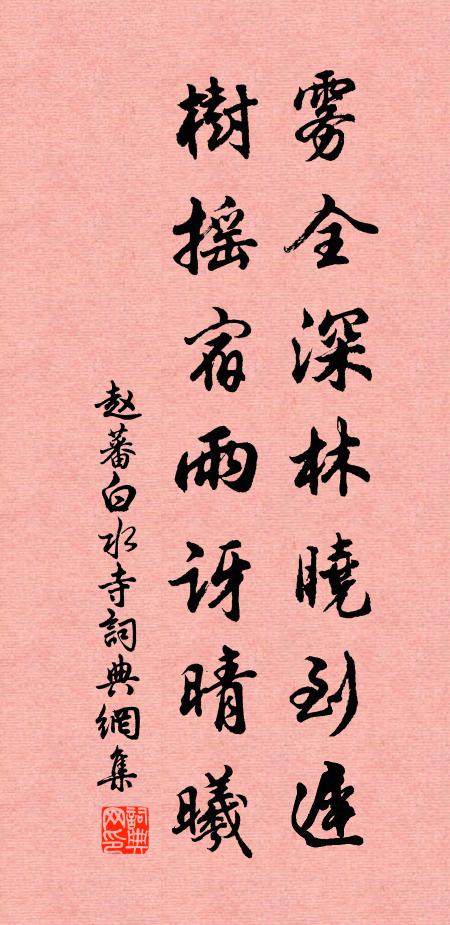 雾全深林曉到遲
樹摇宿雨讶晴曦
赵蕃白水寺詞典網集
詞典网印